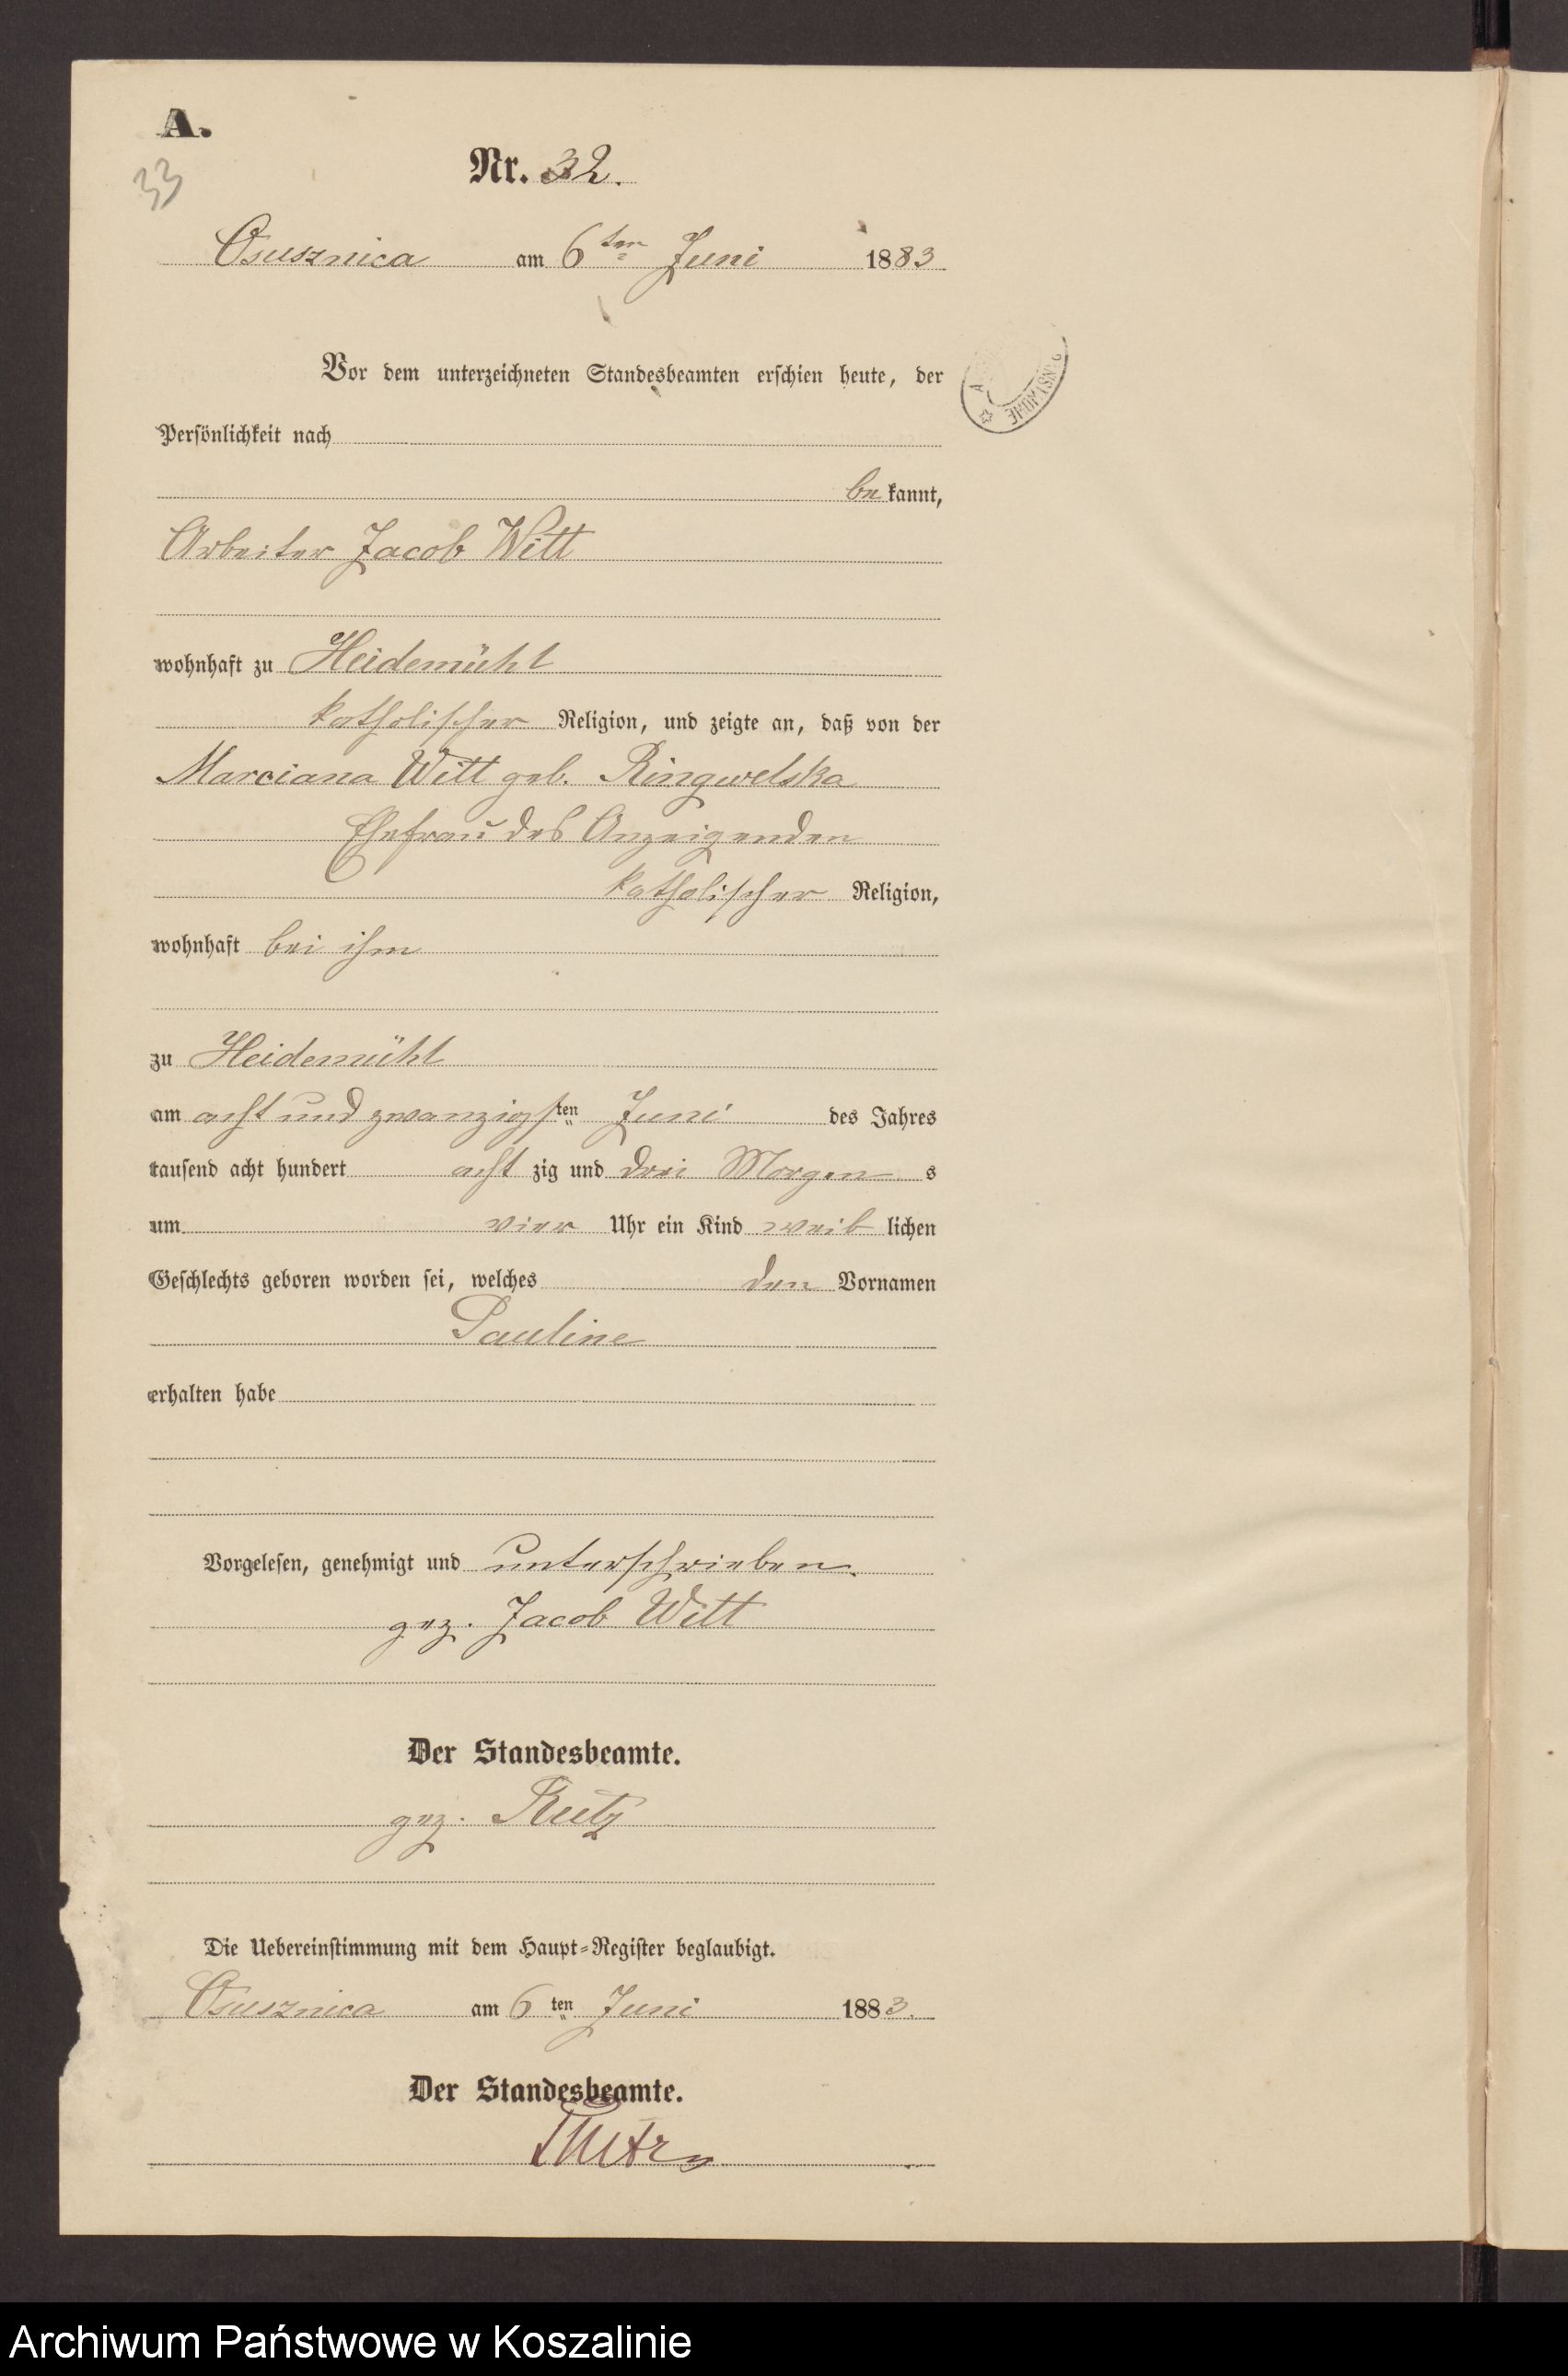 A.
33
Nr. 32.
Osusznica am 6ten Juni 1883
Vor dem unterzeichneten Standesbeamten erschien heute, der
Persönlichkeit nach
be kannt,
Arbeiter Jacob Witt
wohnhaft zu Heidemühl
katholischer Religion, und zeigte an, daß von der
Marciana Witt geb. Ringwelska
Ehefrau des Anzeigenden
katholischer Religion,
wohnhaft bei ihm
zu Heidemühl
am acht und zwanzigsten Juni des Jahres
tausend acht hundert acht zig und drei Morgens
um vier Uhr ein Kind weib lichen
Geschlechts geboren worden sei, welches den Vornamen
Pauline
erhalten habe
Vorgelesen, genehmigt und unterschrieben.
gez. Jacob Witt
Der Standesbeamte.
gez. Rutz
Die Uebereinstimmung mit dem Haupt-Register beglaubigt.
Osusznica am 6ten Juni 1883.
Der Standesbeamte.
Archiwum Państwowe w Koszalinie